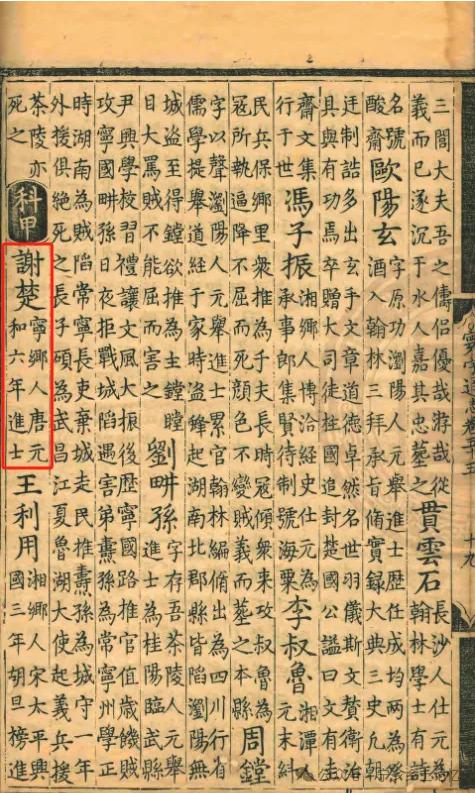 三閭大夫吾之儔侶優哉游哉從
義而已遂沉于水人嘉其忠墓之
貫雲石
長沙人仕元為
翰林學士有詩
名號
酸齋
歐陽玄
字原功瀏陽人元舉進士歷任成均兩為祭
酒入翰林三拜承旨脩實録大典三史凡朝
廷制誥多出玄手文章道德卓然名世羽儀斯文贊衛治
具與有功焉卒贈大司徒柱國追封楚國公諡曰文有圭
齋文集
行于世
馮子振
湘鄉人博洽經史仕元為
承事郎集賢待制號海粟
李叔魯
湘潭人
元末糾
民兵保鄉里衆推為千夫長時冦傾衆来攻叔魯為
冦所執逼降不屈而死顔色不變賊義而塟之本縣
周鏜
字以聲瀏陽人元舉進士累官翰林編脩出為四川行省
儒學提舉道經于家時盗鋒起湖南北郡縣皆陷瀏陽無
城盗至得鏜欲推為主鏜瞠
目大罵賊不能屈而害之
劉畊孫
字存吾茶陵人元舉
進士為桂陽臨武縣
尹興學校習禮讓文風大振後歷寧國路推官值歲饑賊
攻寧國畊孫日夜拒戰城陷遇害弟燾孫為常寧州學正
時湖南為賊陷常寧長吏棄城走民推燾孫為城守一年
外援俱絶死之長子碩為武昌江夏魯湖大使起義兵援
茶陵亦
死之
科甲
謝楚
寧鄉人唐元
和六年進士
王利用
湘鄉人宋太平興
國三年胡旦榜進